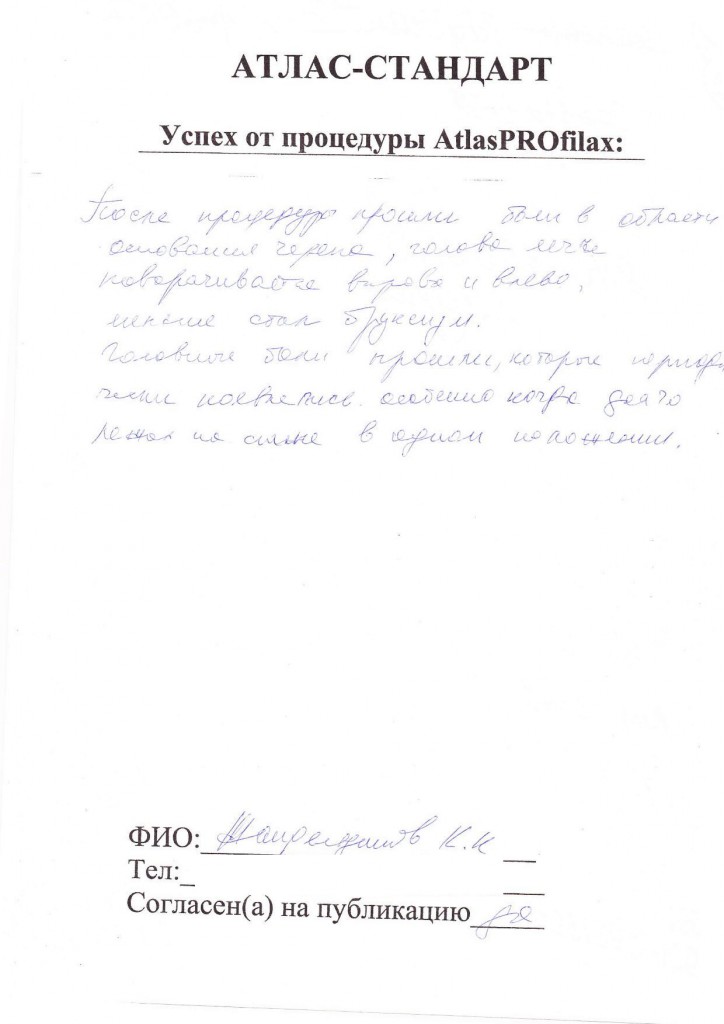 АТЛАС-СТАНДАРТ
Успех от процедуры AtlasPROfilax:
После процедур прошли боли в области
основания черепа, голова легче
поворачивается вправо и влево,
меньше стал бруксизм.
Головные боли прошли, которые периоди
чески появлялись особенно когда долго
лежал на спине в одном положении.
ФИО: К.К
Тел:
Согласен(а) на публикацию да